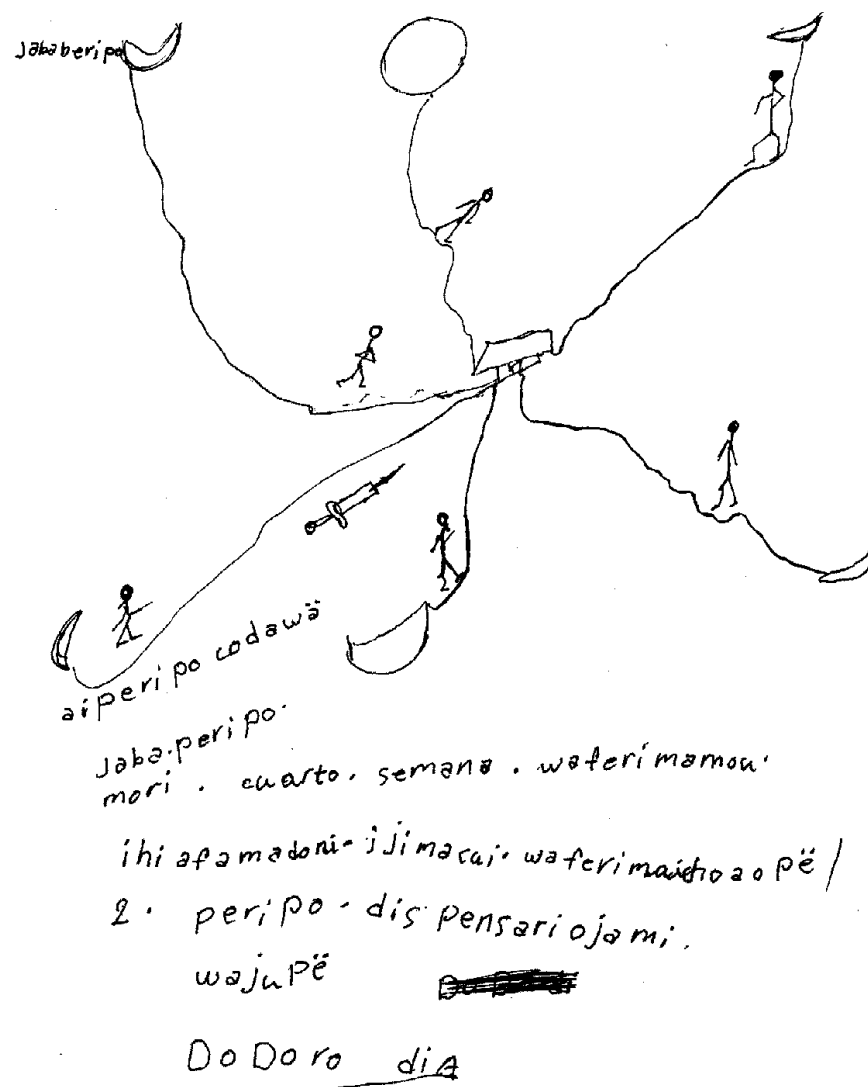 Jababeripo
aiperipo codawä
Jaba.peripo.
mori . cuarto . semana . waferimamou.
ihi afamadoni- ijimacui.
2. peripo - dispensariojami.
wajupë
DoDoro dia